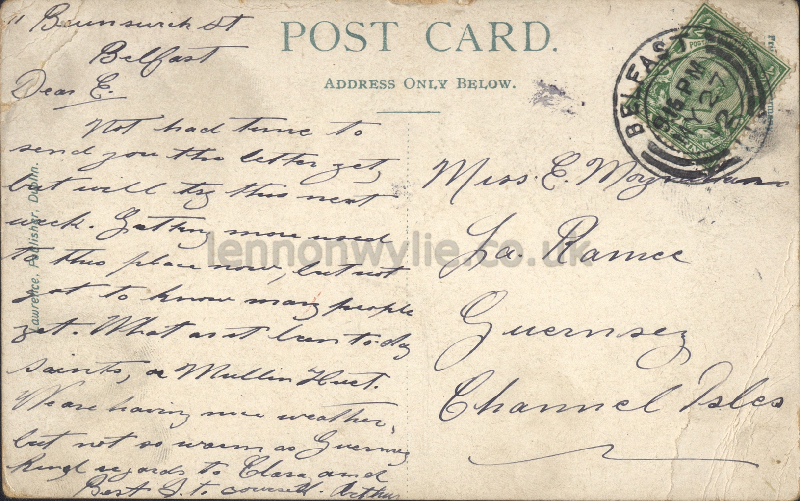 11 Brunswick St
Belfast
Dear E.
Not had time to
send you the letter yet,
but will try this next
week. Getting more used
to this place now, but not
got to know many people
yet. What as it been to-day
saints, or Mullin Huet.
We are having nice weather,
but not so warm as Guernsey
Kind regards to Clara and
Best to yourself. Arthur
Lawrence, Publisher, Dublin.
POST CARD.
ADDRESS ONLY BELOW.
BELFAST
9.15 PM
MY 27
Miss. E.
La Ramee
Guernsey
Channel Isles
lennonwylie.co.uk